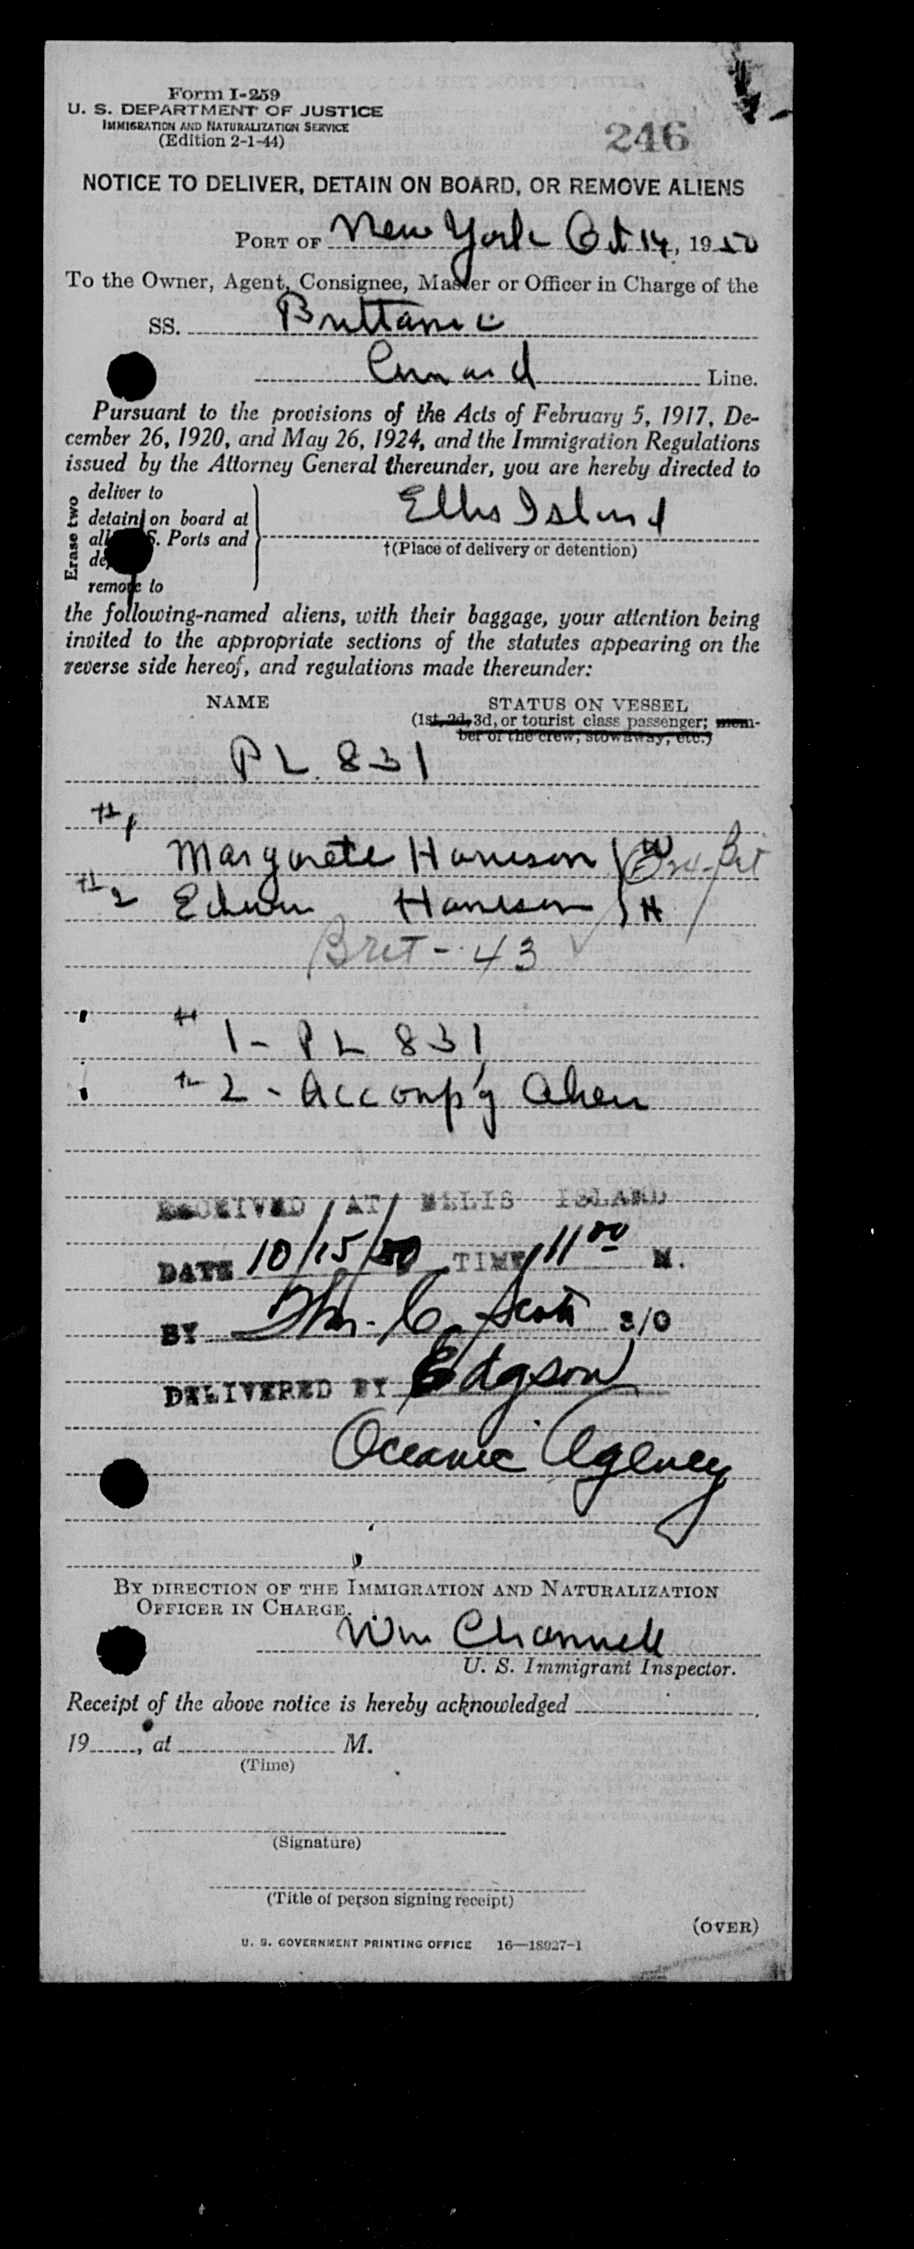 Form I-259
U. S. DEPARTMENT OF JUSTICE
IMMIGRATION AND NATURALIZATION SERVICE
(Edition 2-1-44)
246
NOTICE TO DELIVER, DETAIN ON BOARD, OR REMOVE ALIENS
PORT OF New York Oct 14, 1950
To the Owner, Agent, Consignee, Master or Officer in Charge of the
SS. Brittanic
Cunard Line.
Pursuant to the provisions of the Acts of February 5, 1917, De-
cember 26, 1920, and May 26, 1924, and the Immigration Regulations
issued by the Attorney General thereunder, you are hereby directed to
Erase two
deliver to
detain on board at
all S. Ports and
remove to
Ellis Island
†(Place of delivery or detention)
the following-named aliens, with their baggage, your attention being
invited to the appropriate sections of the statutes appearing on the
reverse side hereof, and regulations made thereunder:
NAME
STATUS ON VESSEL
(1st, 2d, 3d, or tourist class passenger; mem-
ber of the crew, stowaway, etc.)
PL 831
#1
Margarete Harrison W
#2 Edwin Harrison H
Brit - 43
# 1 - PL 831
# 2 - Accomp'g Alien
RECEIVED AT ELLIS ISLAND
DATE 10/15/50 TIME 11 00 M.
BY Thos. C. Scott S/O
DELIVERED BY Edgson
Oceanic Agency
BY DIRECTION OF THE IMMIGRATION AND NATURALIZATION
OFFICER IN CHARGE.
Wm Channell
U. S. Immigrant Inspector.
Receipt of the above notice is hereby acknowledged
19, at M.
(Time)
(Signature)
(Title of person signing receipt)
(OVER)
U. S. GOVERNMENT PRINTING OFFICE 16—18927-1